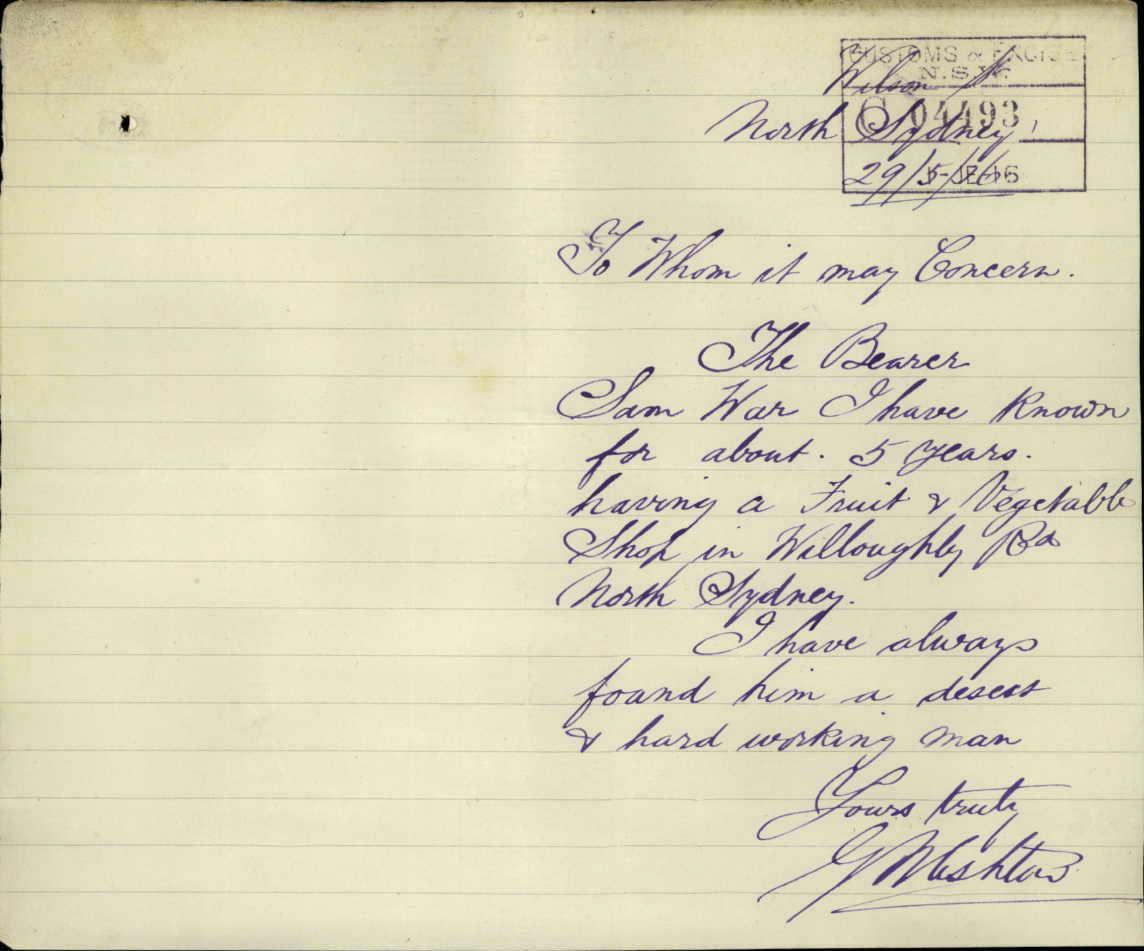 CUSTOMS & EXCISE
N.S.W.
Wilson St
C 04493
North Sydney
29/5/16
1-JE-16
To Whom it may Concern.
The Bearer
Sam War I have known
for about. 5 years.
having a Fruit & Vegetable
Shop in Willoughby Rd
North Sydney.
I have always
found him a decent
& hard working man
Yours truly